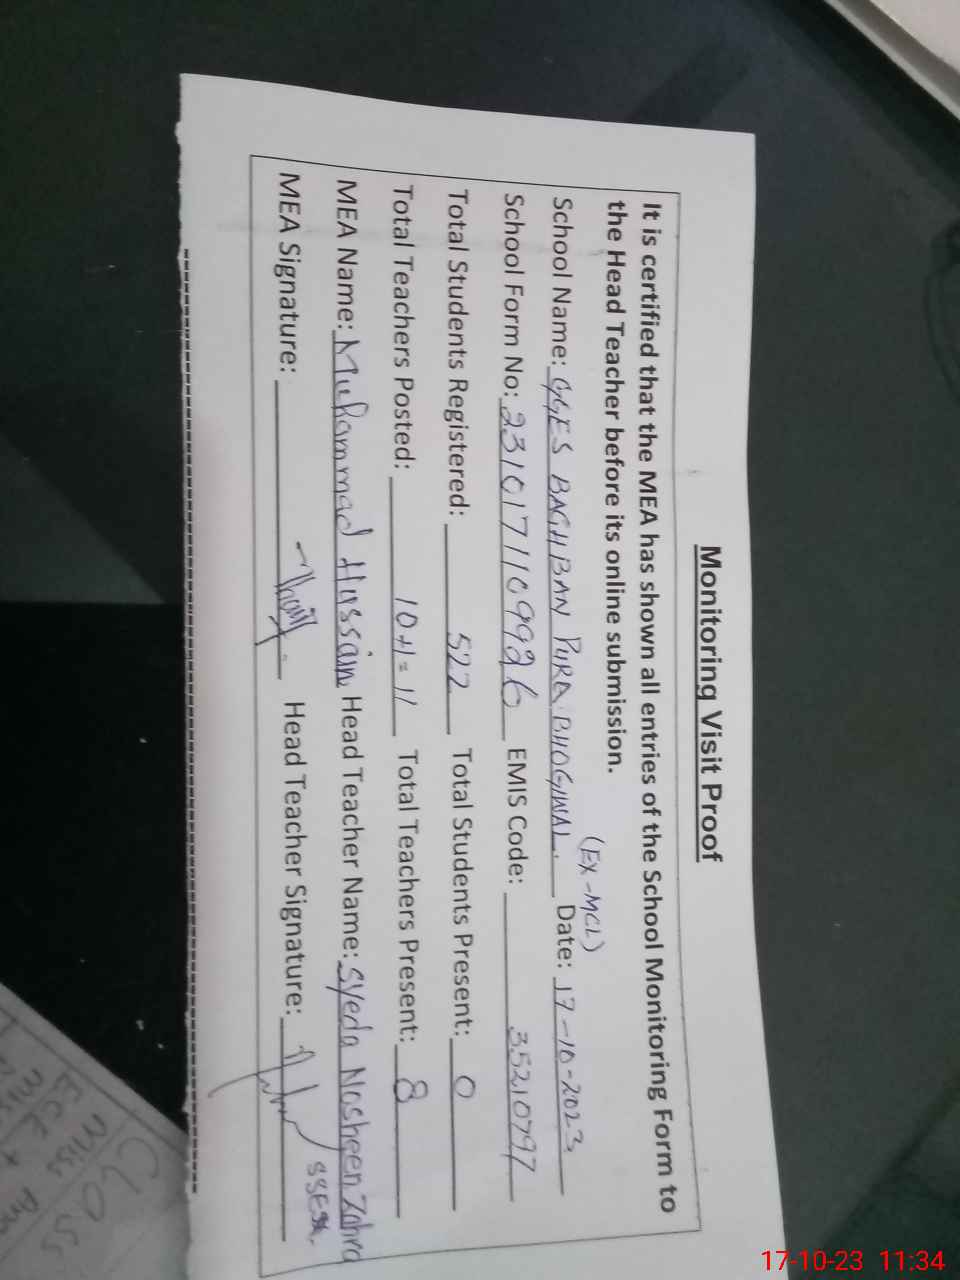 Monitoring Visit Proof
It is certified that the MEA has shown all entries of the School Monitoring Form to
the Head Teacher before its online submission.
(EX-MCL)
School Name: GGES BAGHBAN PURA BHOGIWAL. Date: 17-10-2023
School Form No: 23101711099926 EMIS Code: 35210797
Total Students Registered: 522 Total Students Present: 0
Total Teachers Posted: 10+1=11 Total Teachers Present: 8
MEA Name: Muhammad Hassain Head Teacher Name: Syeda Nosheen Zahra
MEA Signature: Head Teacher Signature:
CLASS
MISS
ECE +
17-10-23 11:34